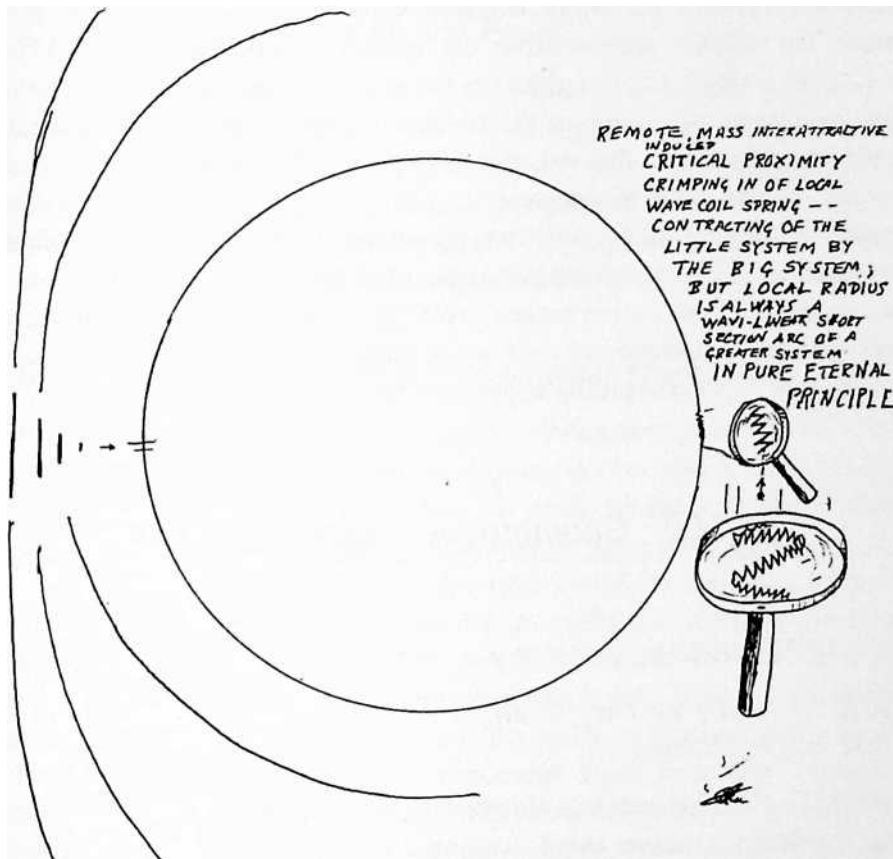 REMOTE, MASS INTERATTRACTIVE
INDUCED
CRITICAL PROXIMITY
CRIMPING IN OF LOCAL
WAVE COIL SPRING --
CONTRACTING OF THE
LITTLE SYSTEM BY
THE BIG SYSTEM;
BUT LOCAL RADIUS
IS ALWAYS A
WAVI-LINEAR SHORT
SECTION ARC OF A
GREATER SYSTEM
IN PURE ETERNAL
PRINCIPLE